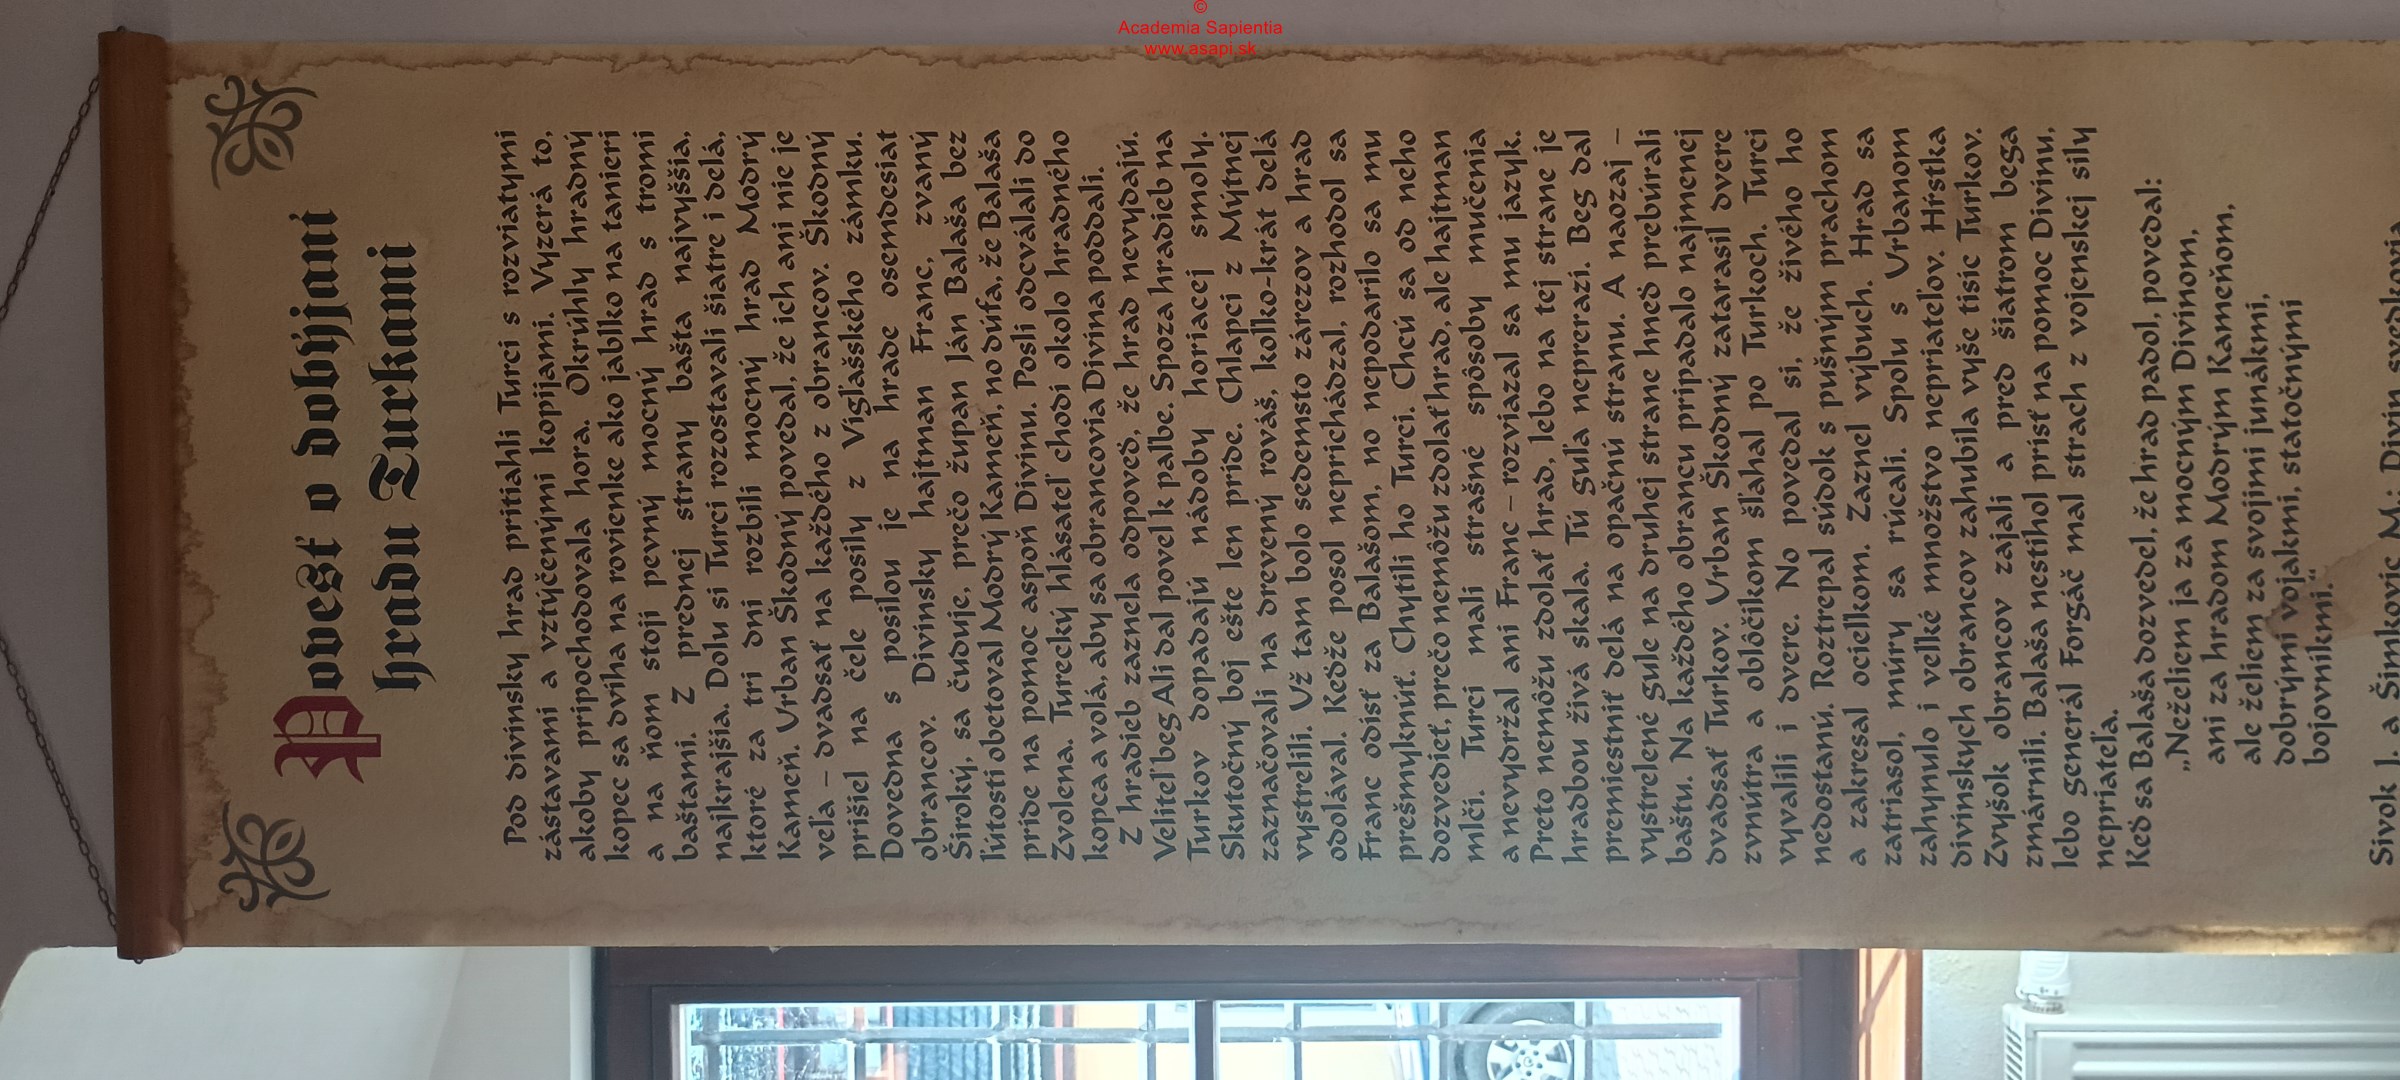 ©
Academia Sapientia
www.asapi.sk
Povesť o dobýjaní
hradu Turkami
Pod divínsky hrad pritiahli Turci s rozviatymi
zástavami a vztýčenými kopijami. Vyzerá to,
akoby pripochodovala hora. Okrúhly hradný
kopec sa dvíha na rovienke ako jabĺko na tanieri
a na ňom stojí pevný mocný hrad s tromi
baštami. Z prednej strany bašta najvyššia,
najkrajšia. Dolu si Turci rozostavali šiatre i delá,
ktoré za tri dni rozbili mocný hrad Modrý
Kameň. Urban Škodný povedal, že ich ani nie je
veľa – dvadsať na každého z obrancov. Škodný
prišiel na čele posily z Víglašského zámku.
Dovedna s posilou je na hrade osemdesiat
obrancov. Divínsky hajtman Franc, zvaný
Široký, sa čuduje, prečo župan Ján Balaša bez
ľútosti obetoval Modrý Kameň, no dúfa, že Balaša
príde na pomoc aspoň Divínu. Posli odcválali do
Zvolena. Turecký hlásateľ chodí okolo hradného
kopca a volá, aby sa obrancovia Divína poddali.
Z hradieb zaznela odpoveď, že hrad nevydajú.
Veliteľ beg Ali dal povel k paľbe. Spoza hradieb na
Turkov dopadajú nádoby horiacej smoly.
Skutočný boj ešte len príde. Chlapci z Mýtnej
zaznačovali na drevený rováš, koľko-krát delá
vystrelili. Už tam bolo sedemsto zárezov a hrad
odolával. Keďže posol neprichádzal, rozhodol sa
Franc odísť za Balašom, no nepodarilo sa mu
prešmyknúť. Chytili ho Turci. Chcú sa od neho
dozvedieť, prečo nemôžu zdolať hrad, ale hajtman
mlčí. Turci mali strašné spôsoby mučenia
a nevydržal ani Franc – rozviazal sa mu jazyk.
Preto nemôžu zdolať hrad, lebo na tej strane je
hradbou živá skala. Tú guľa neprerazí. Beg dal
premiestniť delá na opačnú stranu. A naozaj –
vystrelené gule na druhej strane hneď prebúrali
baštu. Na každého obrancu pripadalo najmenej
dvadsať Turkov. Urban Škodný zatarasil dvere
zvnútra a oblôčikom šľahal po Turkoch. Turci
vyvalili i dvere. No povedal si, že živého ho
nedostanú. Roztrepal súdok s pušným prachom
a zakresal ocieľkom. Zaznel výbuch. Hrad sa
zatriasol, múry sa rúcali. Spolu s Urbanom
zahynulo i veľké množstvo nepriateľov. Hŕstka
divínskych obrancov zahubila vyše tisíc Turkov.
Zvyšok obrancov zajali a pred šiatrom bega
zmárnili. Balaša nestihol prísť na pomoc Divínu,
lebo generál Forgáč mal strach z vojenskej sily
nepriateľa.
Keď sa Balaša dozvedel, že hrad padol, povedal:
„Neželiem ja za mocným Divínom,
ani za hradom Modrým Kameňom,
ale želiem za svojimi junákmi,
dobrými vojakmi, statočnými
bojovníkmi.“
Sivok J. a Šimkovic M.: Divín svedkovia